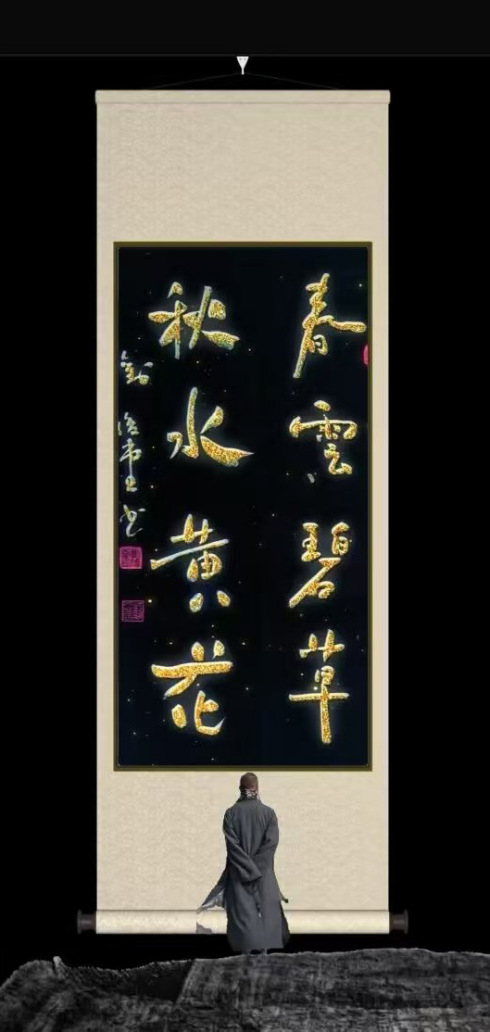 春雲碧草
秋水黄花